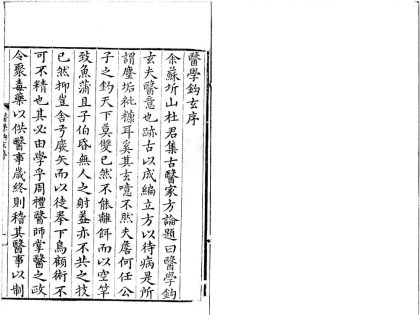 醫學鈎玄序
余蘇圻山杜君集古醫家方論題曰醫學鈎
玄夫醫意也跡古以成編立方以待病是所
謂塵垢粃糠耳奚其玄噫不然夫詹何任公
子之釣天下莫雙已然不能離餌而以空竿
致魚蒲且子伯昏無人之射益亦不共之技
已然抑豈舍弓廢矢而以徒拳下鳥顧術不
可不精也其必由學乎周禮醫師掌醫之政
令聚毒藥以供醫事歲終則稽其醫事以制